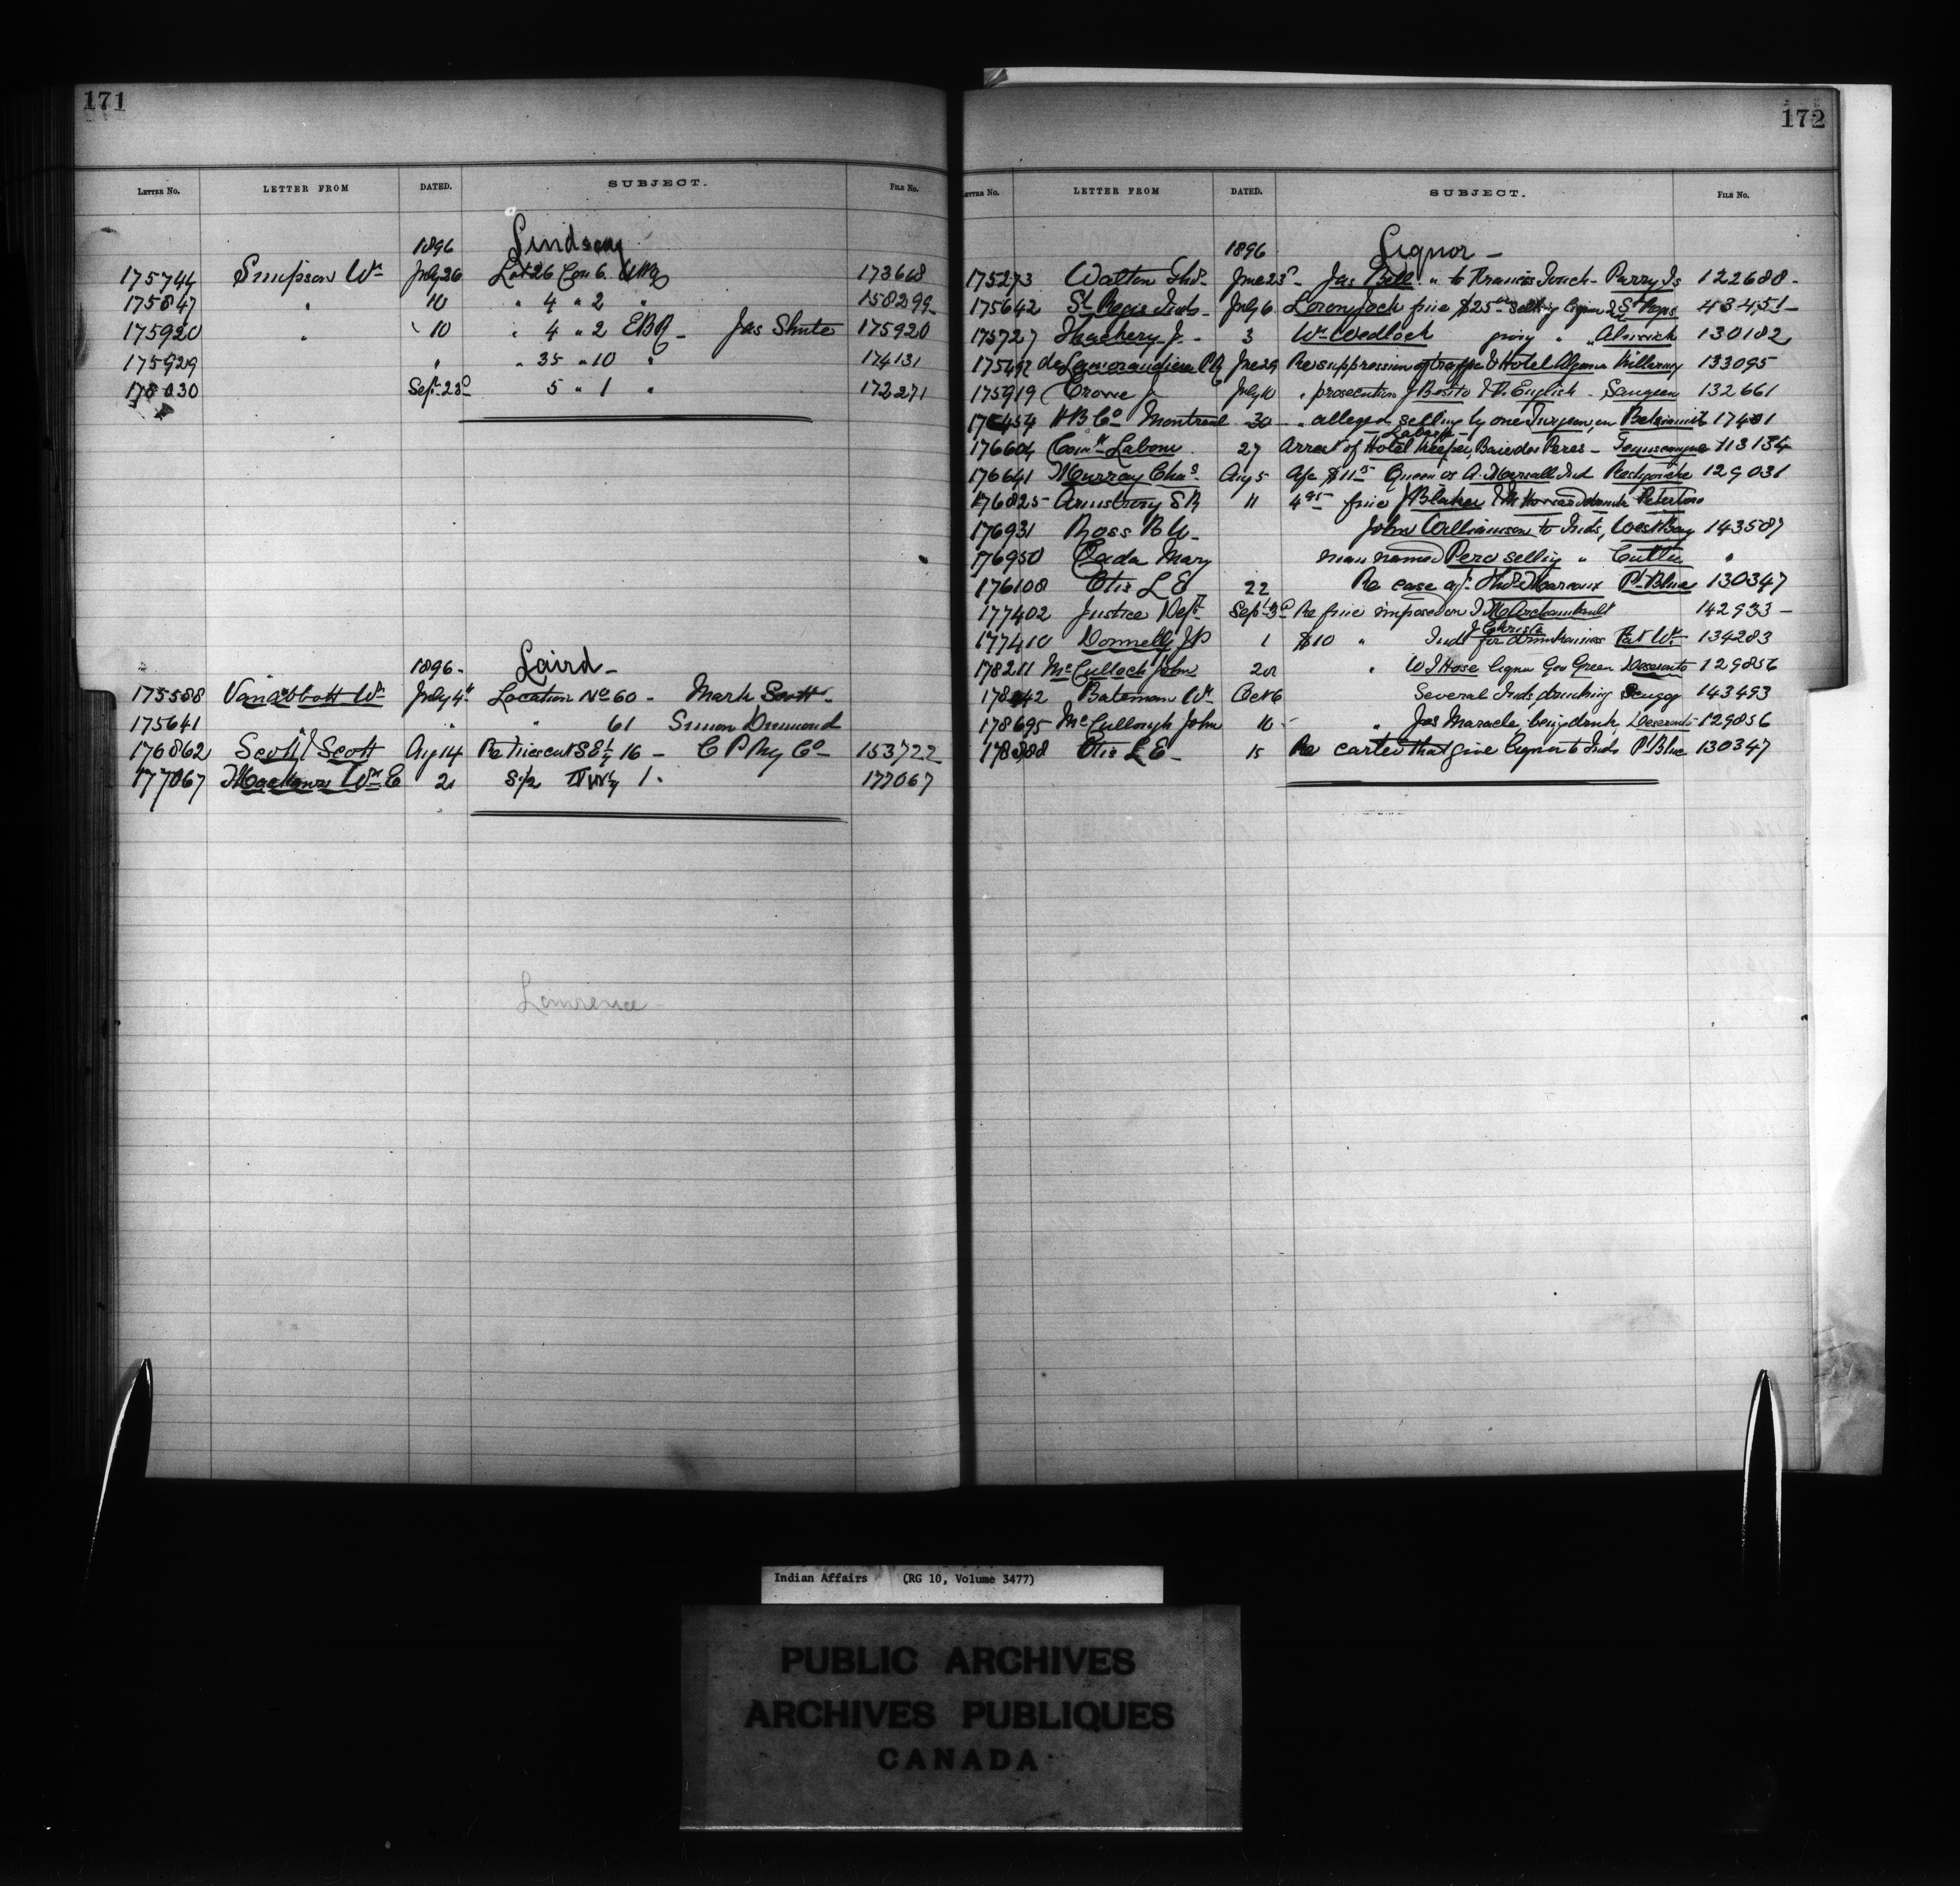 171
LETTER No. LETTER FROM DATED. SUBJECT. FILE No.
1896 Lindsay
175744 Simpson Wm July 26 Lot 26 Con 6. 173668
175847 " 10 " 4 " 2 " 158299
175920 " 10 " 4 " 2 EBR Jas Shute 175920
175929 " " 35 " 10 " 174131
178030 Sept 23d 5 " 1 " 172271
1896 - Laird -
175588 Van Abbott Wm July 4th Location No 60 - Mark Scott -
175641 " " 61 Simon Drumond
176862 Scott & Scott Aug 14 Re Trees cut S E 1/4 16 - C P Ry Co - 153722
177067 Wm E 21 S 1/2 1 . 177067
Lawrence
172
LETTER No. LETTER FROM DATED. SUBJECT. FILE No.
1896 Liquor -
175273 Walton Thos - June 23d - Jas Bell " to Francis - Parry Is 122688 -
175642 St Regis Inds - July 6 fine $25 00 selling liquor St Regis 43451 -
175727 Thackery J - 3 Wm Wedlock giving " " Alnwick 130182
de Lamorandiere P R June 29 Re suppression of traffic Hotel Algoma Killarney 133095
175919 Crowe J July 10 " prosecution J Besito & R. English - Saugeen 132661
H B Co Montreal 30 " alleged selling by one on Betsiamits
176604 27 Arrest of Hotel Keeper, Baie des Peres - Temiscamingue 113134
176641 Murray Chas Aug 5 Queen vs A. Marsall Ind Restigouche 129031
176825 - Armstrong S R 11 fine J Blaker
176931 Ross B W - John Williamson to Inds, West Bay 143589
176950 Cada Mary man named Pero selling " Cutler "
176108 Otis L E 22 Re case agst Thos Moreaux Pt Blue 130347
177402 Justice Dept Sept 3d Re fine imposed on Archambault 142933 -
177410 Donnelly J P 1 $10 " Ind J Christe for drunkenness Fort Wm 134283
178211 McCulloch John " W J Hose liquor Geo Green Deseronto 129856
Bateman Wm Oct 6 Several Inds drinking Scugog 143493
178695 McCullough John 10 - " Jos Maracle, being drunk, Deseronto 129856
178888 Otis L E - 15 Re carter that give liquor to Inds Pt Blue 130347
Indian Affairs (RG 10, Volume 3477)
PUBLIC ARCHIVES
ARCHIVES PUBLIQUES
CANADA